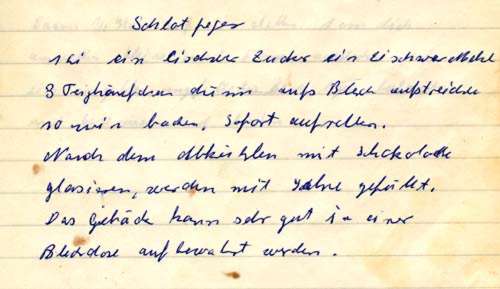 Schlotfeger
1 Ei ein Eischwer Zucker ein Eischwer Mehl
8 Teighäufchen dünn aufs Blech aufstreichen
10 min backen. Sofort aufrollen.
Nach dem Abkühlen mit Schokolade
glasieren, werden mit Sahne gefüllt.
Das Gebäck kann sehr gut in einer
Blechdose aufbewahrt werden.